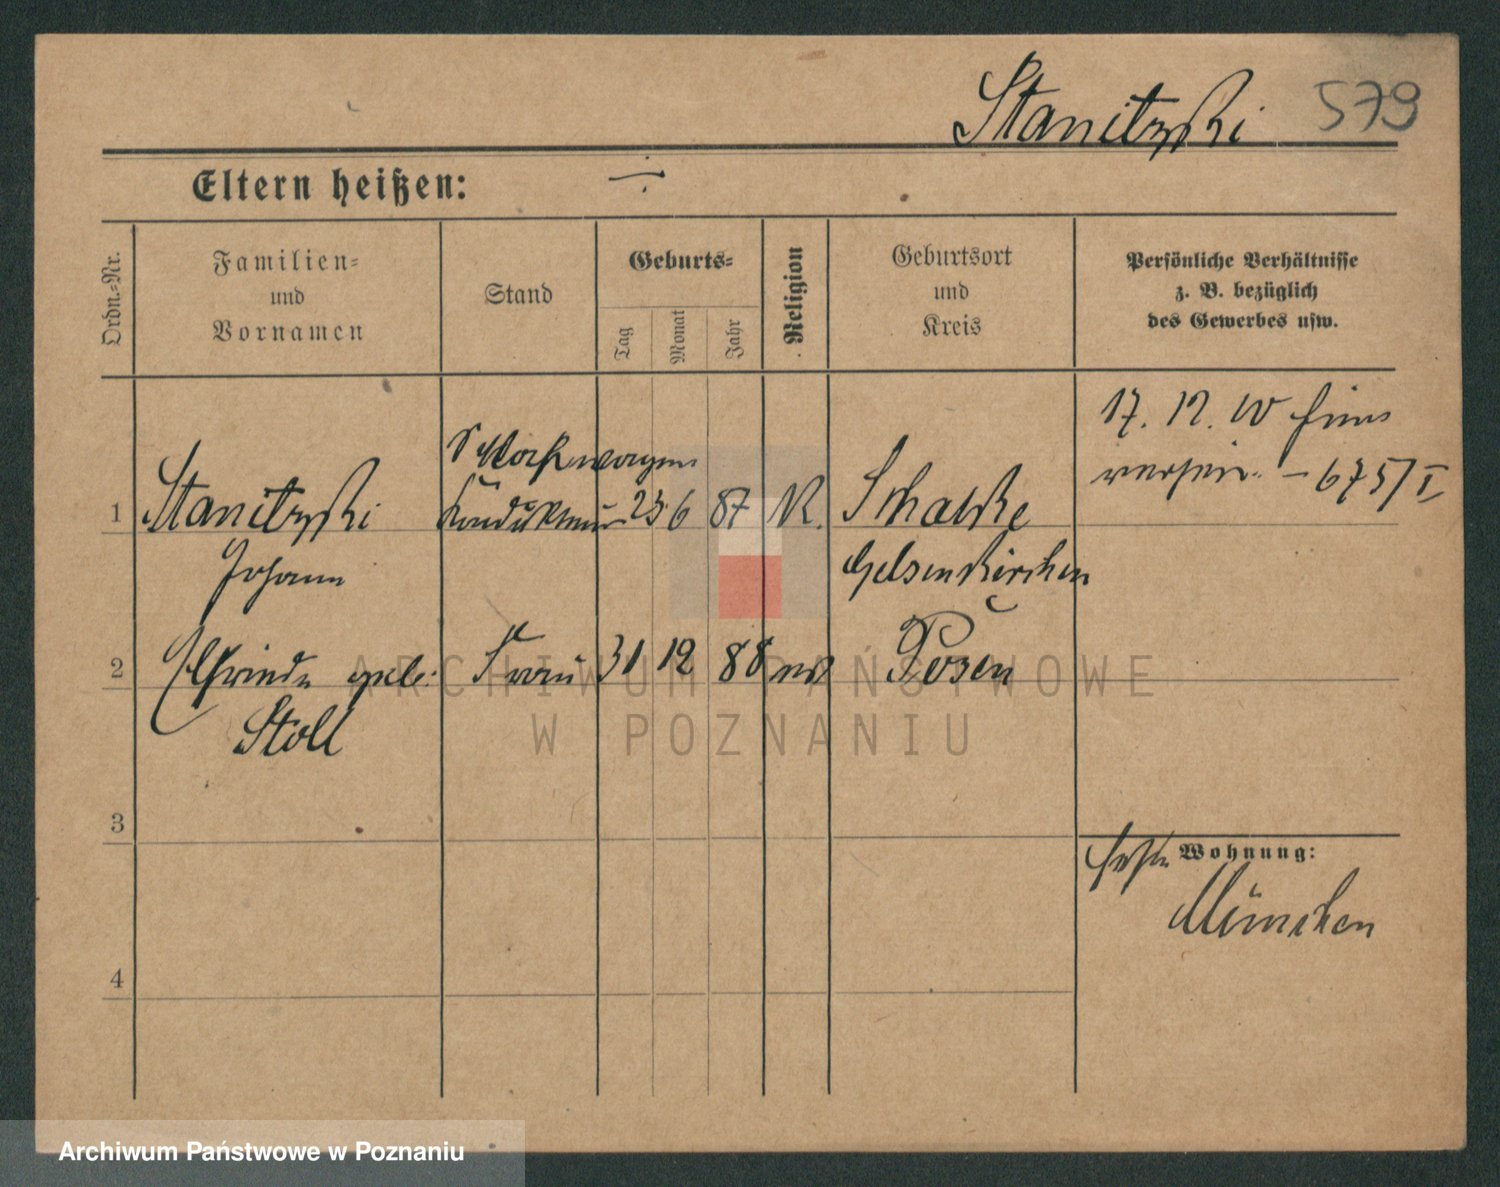 Stanitzki 579
Eltern heißen: ÷
Ordn.-Nr.
Familien-
und
Vornamen
Stand
Geburts-
Tag
Monat
Jahr
Religion
Geburtsort
und
Kreis
Persönliche Verhältnisse
z. B. bezüglich
des Gewerbes usw.
17. 12.
- 675/I
Schlafwagen
1 Stanitzki Kondukteur 23 6 87 K. Schalke
Johann Gelsenkirchen
2 Elfriede geb: Frau 31 12 88 Posen
Stoll
3
Wohnung:
München
4
ARCHIWUM PAŃSTWOWE
W POZNANIU
Archiwum Państwowe w Poznaniu